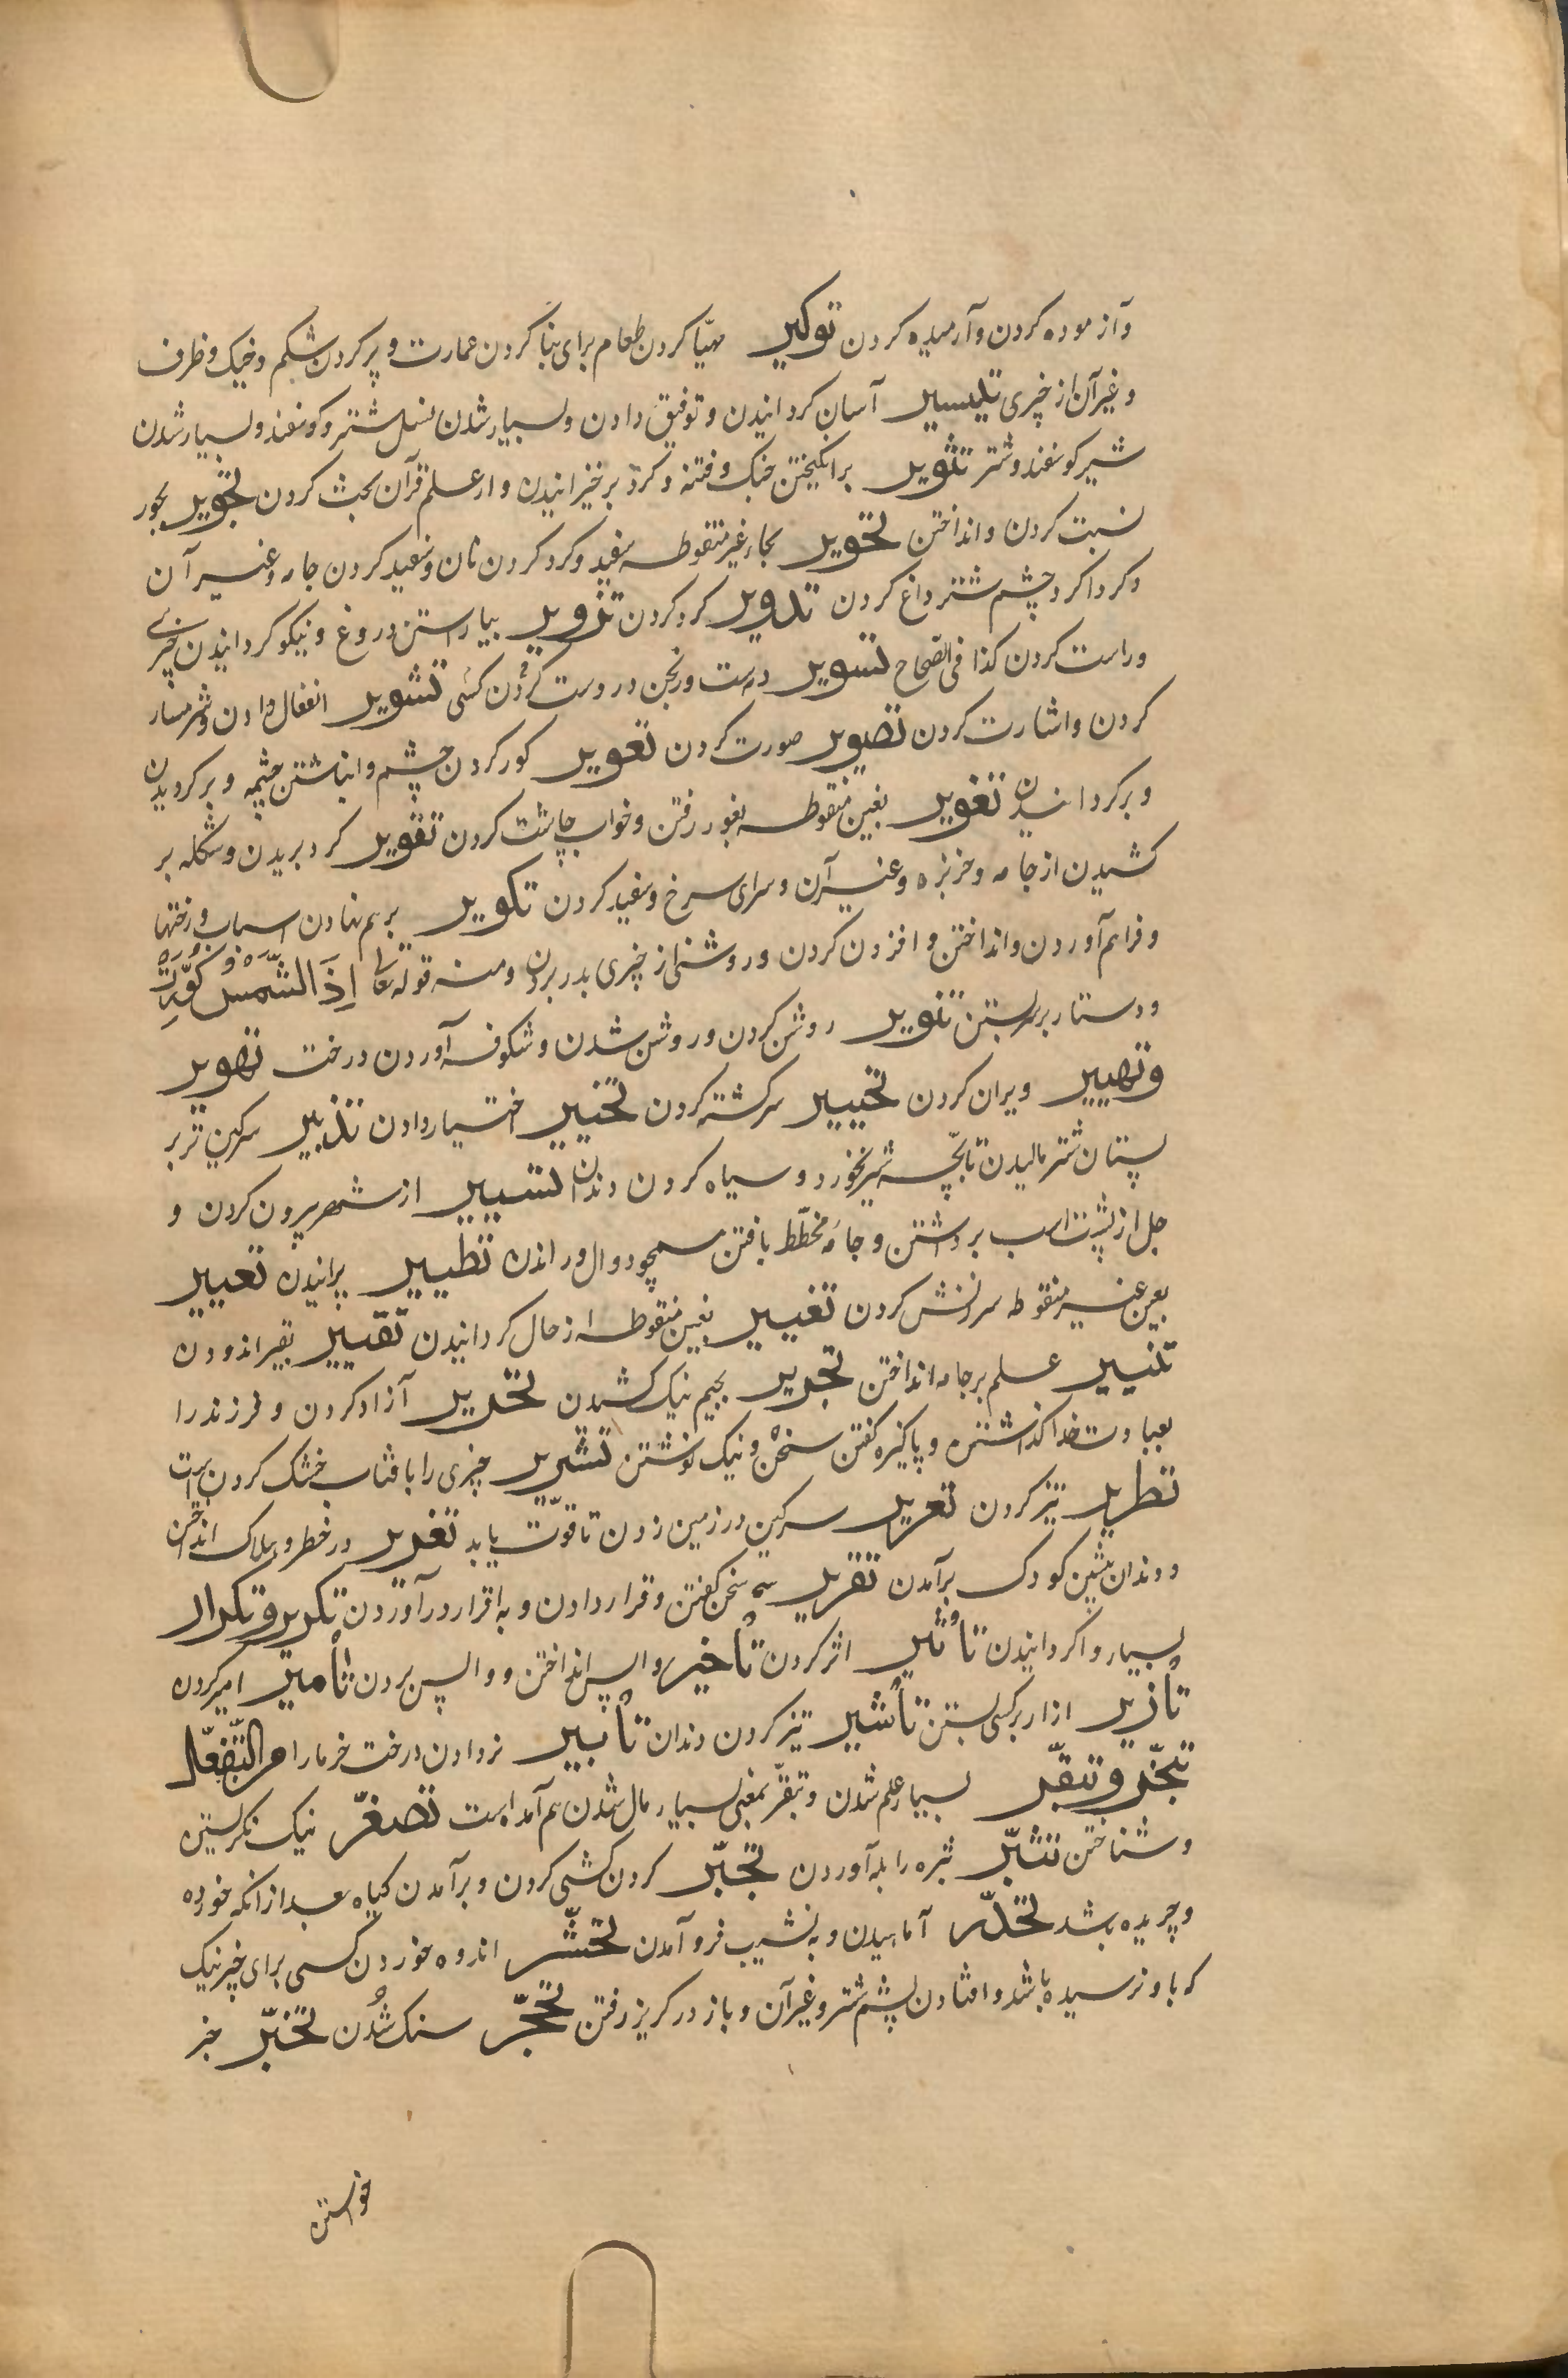 وآزموده کردن وآرمیده کردن توکیر مهیّا کردن طعام برای بنا کردن عمارت وپر کردن شکم وخیک وظرف
وغیر آن از چیزی تیسیر آسان کردانیدن وتوفیق دادن وبسیار شدن نسل شتر وکوسفند وبسیار شدن
شیر کوسفند وشتر تثویر برانکیختن جنک وفتنه وکرد برخیزانیدن واز علم قرآن بحث کردن تجویر بجور
نسبت کردن وانداختن تحویر بحاء غیر منقوطه سفید وکرد کردن نان وسفید کردن جامه وغیر آن
وکرداکرد چشم شتر داغ کردن تدویر کرد کردن تزویر بیاراستن دروغ ونیکو کردانیدن چیزی
وراست کردن کذا فی الصّحاح تسویر دست ورنجن در دست کردن کسی تشویر انفعال دادن وشرمسار
کردن واشارت کردن تصویر صورت کردن تعویر کور کردن چشم وانباشتن چشمه وبرکردیدن
وبرکردانیدن تغویر بغین منقوطه بغور رفتن وخواب چاشت کردن تقویر کرد بریدن وشکله بر
کشیدن از جامه وخربزه وغیر آن وسرای سرخ وسفید کردن تکویر برهم نهادن اسباب ورختها
وفراهم آوردن وانداختن وافزون کردن وروشنی از چیزی بدر بردن ومنه قوله تعالی اِذَا الشَّمْسُ کُوِّرَتْ
ودستار بر سر بستن تنویر روشن کردن وروشن شدن وشکوفه آوردن درخت تهویر
وتهییر ویران کردن تحییر سرکشته کردن تخییر اختیار دادن تذییر سرکین تر بر
پستان شتر مالیدن تا بچّه شیر نخورد وسیاه کردن دندان تسییر از شهر بیرون کردن و
جل از پشت اسب برداشتن وجامهٔ مخطّط بافتن همچو دوال وراندن تطییر پرانیدن تعییر
بعین غیر منقوطه سرزنش کردن تغییر بغین منقوطه از حال کردانیدن تقییر بقیر اندودن
تنییر علم بر جامه انداختن تجریر بجیم نیک کشیدن تحریر آزاد کردن وفرزند را
بعبادت خدا کذاشتن وپاکیزه کفتن سخن ونیک نوشتن تشریر چیزی را بافتاب خشک کردن است
تطریر تیز کردن تعریر سرکین در زمین زدن تا قوّت یابد تغریر در خطر وهلاک انداختن
ودندان پیشین کودک برآمدن تقریر سخن کفتن وقرار دادن وبه اقرار درآوردن تکریر وتکرار
بسیار واکردانیدن تأثیر اثر کردن تأخیر واپس انداختن وواپس بردن تأمیر امیر کردن
تأزیر ازار بر کسی بستن تأشیر تیز کردن دندان تأبیر نر دادن درخت خرما را من التّفعّل
تبحّر وتبقّر بسیار علم شدن وتبقّر بمعنی بسیار مال شدن هم آمده است تصغّر نیک نکرستن
وشناختن تثبّر ثبره را بله آوردن تجبّر کردن کشی کردن وبرآمدن کیاه بعد از انکه خورده
وچریده باشد تحدّر آماهیدن وبه نشیب فرو آمدن تحسّر اندوه خوردن کسی برای چیز نیک
که باو نرسیده باشد وافتادن پشم شتر وغیر آن وباز در کریز رفتن تحجّر سنک شدن تخبّر خبر
خواستن